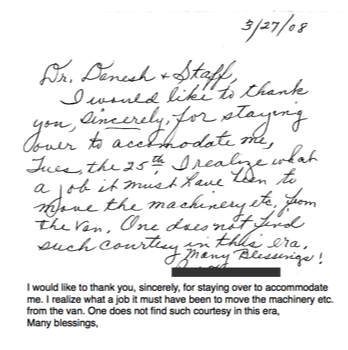 3/27/08
Dr. Danesh + Staff,
I would like to thank
you, sincerely, for staying
over to accomodate me,
Tues, the 25th. I realize what
a job it must have been to
move the machinery etc. from
the van. One does not find
such courtesy in this era.
Many Blessings!
I would like to thank you, sincerely, for staying over to accommodate
me. I realize what a job it must have been to move the machinery etc.
from the van. One does not find such courtesy in this era,
Many blessings,